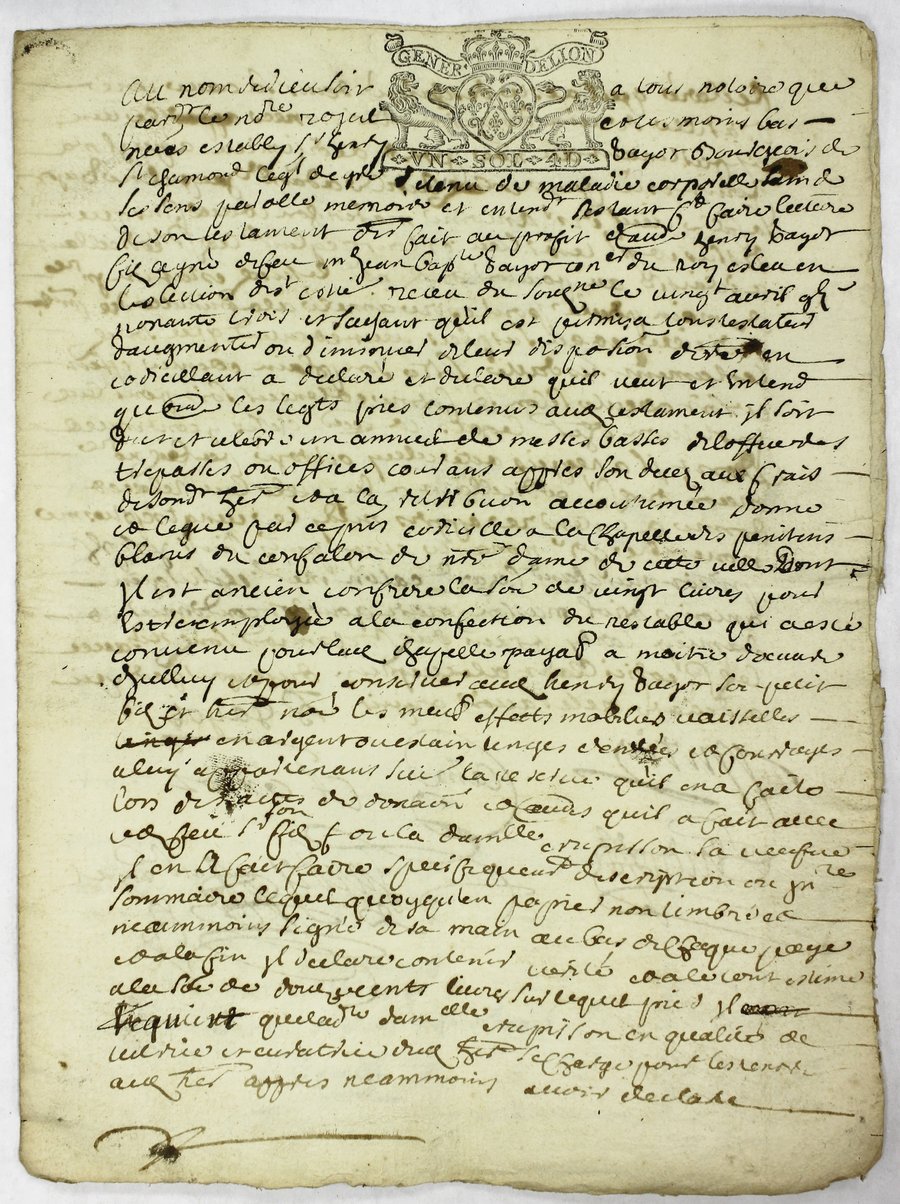 GENER DELION
VN SOL 4D
Au nom de dieu soit a tous notoire que
pard. le nore royal et tesmoins bas
nōes estably sr henry Bayor Bourgeois de
St chamond legt detenu de maladie corporelle sain de
ses sens parolle memoire et entendt estant faire lecture
de son testament fait au profit henry Bayor
filz de feu mre Jean bapte Bayor coner du roy esleu en
leslection receu du le vingt avril
nonante trois et sachant qu'il est permis a tous testateurs
daugmenter ou diminuer de leur disposion en
codicillant a declaré et declare quil veut et entend
que les legts pies contenus aud testament il soit
dit et celebré un annuel de messes basses de loffice des
trepassés ou offices courans appres son decez aux frais
de sond. her et a la retribuon accoutumée donne
et legue par ce pnt codicille a la chapelle des penitens
blancs du confalon de nore dame de cette ville Dont
Il est ancien confrere la soe de vingt livres pour
Estre employée a la confection du restable qui a esté
convenu pour lad chapelle payab a moitié
et pour conserver aud henry Bayor son petit
filz et her les effects mobiliers vaisselles
en argent ou estain linges denrées et fourrages
a luy appartenans sur la reserve quil en a faite
lors des actes de donaon et quil a fait avec
led feu sr son filz ou la damlle crupisson sa veufve
Il en a fait faire description ou Inre
sommaire lequel quoyqu'en papier non timbré est
neammoins signé de sa main au bas de chaque page
et a la fin Il declare contenir verité et a le tout estimé
a la soe de douze cents livres sur lequel pied Il
requiert que lade damlle crupisson en qualité de
tutrice et curatrice dud her se charge pour les rendre
aud her appres neammoins avoir declaré